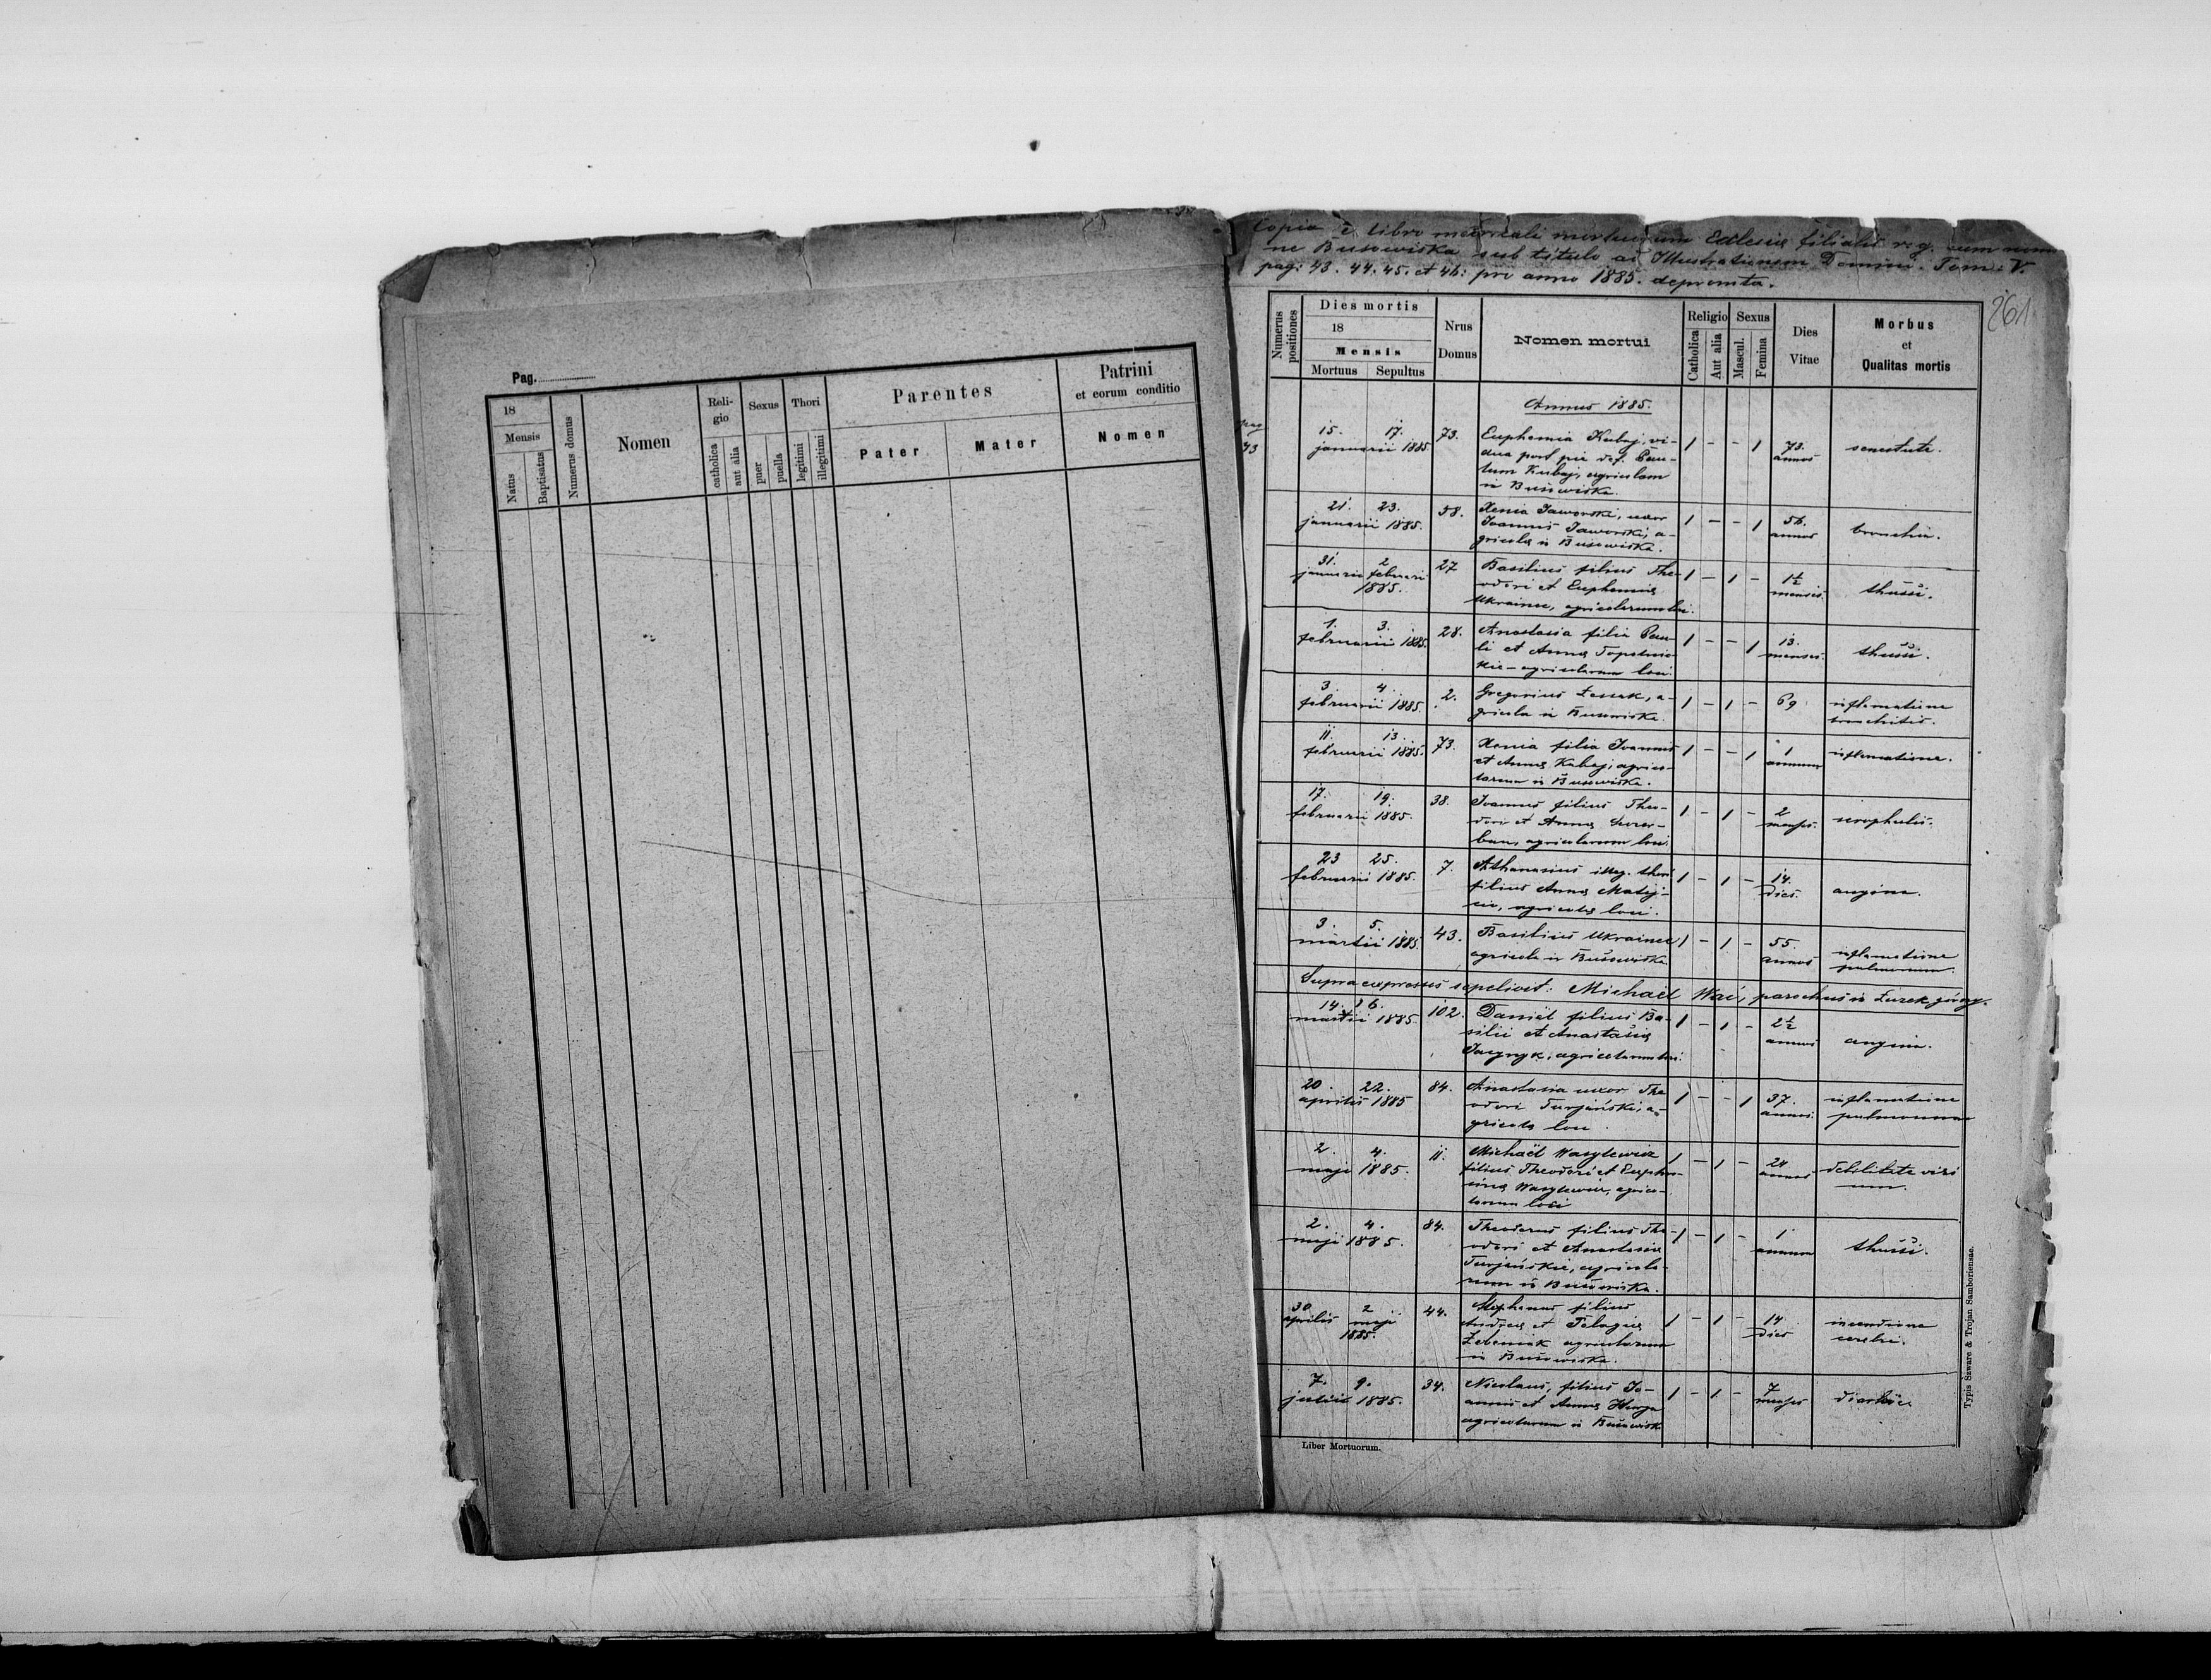 Pag.
18
Mensis
Natus
Baptisatus
Numerus domus
Nomen
Reli-
gio
catholica
aut alia
Sexus
puer
puella
Thori
legitimi
illegitimi
Parentes
Pater
Mater
Patrini
et eorum conditio
Nomen
Copia e Libro metricali mortuorum Ecclesiae filialis r. g. cum nomi
ne Busowiska sub titulo ad Illustrationem Domini. Tom: V.
pag: 43. 44. 45. et 46: pro anno 1885. depromta.
261
Numerus
positiones
Dies mortis
18
Mensis
Mortuus Sepultus
Nrus
Domus
Nomen mortui
Religio
Catholica
Aut alia
Sexus
Mascul.
Femina
Dies
Vitae
Morbus
et
Qualitas mortis
Annus 1885.
pag
43
15. 17. 73. Euphemia Kubaj, vi- 1 - - 1 73.
januarii 1885 dua post pie def. Pau- annos senectute.
lum Kubaj, agricolam
in Busowiska.
21. 23. 58. Xenia Jaworski, uxor 1 - - 1 56.
januarii 1885. Joannis Jaworski, a- annos bronchia.
gricolae in Busowiska.
31. 2 27 Basilius filius The- 1 - 1 - 1½
januarii februarii odori et Euphemiae menses. thussi.
1885. Ukrainec, agricolarum loci.
1. 3. 28. Anastasia filia Pau- 1 - - 1 13.
februarii 1885. li et Annae menses. thussi.
agricolarum loci.
3. 4. 2. Gregorius Lessak, a- 1 - 1 - 69 inflamatione
februarii 1885. gricola in Busowiska. bronchitis.
11. 13. 73. Xenia filia Joannis 1 - - 1 1
februarii 1885. et Annae Kubaj, agrico- annum inflamatione.
larum in Busowiska.
17. 19. 38. Joannes filius Theo- 1 - 1 - 2
februarii 1885. dori et Annae menses. scrophulis.
agricolarum loci.
23 25. 7. Athanasius illeg. thori 1 - 1 - 14.
februarii 1885. filius Annae dies. angina.
agricolae loci.
3. 5. 43. Basilius Ukrainec 1 - 1 - 55.
martii 1885. agricola in Busowiska annos inflamatione
pulmonum.
Supra expressos sepelivit: Michaël parochus in
14. 16. 102. Daniël filius Ba- 1 - 1 - 2½
martii 1885. silii et Anastasiae annos angina.
agricolarum loci.
20. 22. 84. Anastasia uxor The 1 - - 1 37. inflamatione
aprilis 1885 odori Turjański, a- annos. pulmonum
gricola loci.
2. 4. 11. Michaël Wasylewicz 1 - 1 - 24 debilitate viri
maji 1885. filius Theodori et Euphro- annos um.
sinae Wasylewicz, agrico-
larum loci
2. 4. 84. Theodorus filius The- 1 - 1 - 1
maji 1885. odori et Anastasiae annum thussi.
Turjańskie, agricola-
rum in Busowiska.
30 2 44. Stephanus filius 1 - 1 - 14
aprilis maji Andreae et Pelagiae dies
1885. agricolarum cerebri.
in Busowiska.
7. 9. 34. Nicolaus, filius Jo- 1 - 1 - 7
julii 1885. annis et Annae menses
agricolarum in Busowisk
Liber Mortuorum.
Typis Szware & Trojan Samboriensae.